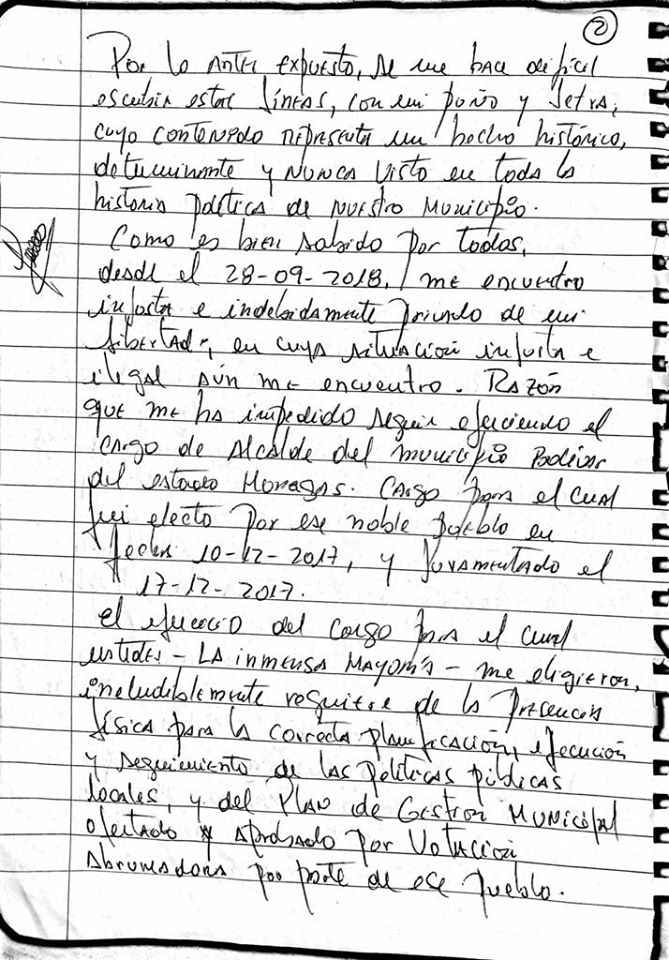 2
Por lo antes expuesto, se me hace dificil
escribir estas líneas, con mi puño y letra,
cuyo contenido representa un hecho histórico,
determinante y nunca visto en toda la
historia política de nuestro Municipio.
Como es bien sabido por todos,
desde el 28-09-2018, me encuentro
injusta e indebidamente privado de mi
libertad, en cuya situación injusta e
ilegal aún me encuentro. Razón
que me ha impedido seguir ejerciendo el
cargo de Alcalde del municipio Bolívar
del estado Monagas. Cargo para el cual
fui electo por ese noble pueblo en
fecha 10-12-2017, y juramentado el
17-12-2017.
El ejercicio del cargo para el cual
ustedes - La inmensa mayoría - me eligieron,
ineludiblemente requiere de la presencia
física para la correcta planificación, ejecución
y seguimiento de las políticas públicas
locales, y del Plan de Gestión Municipal
ofertado y aprobado por votación
abrumadora por parte de ese pueblo.